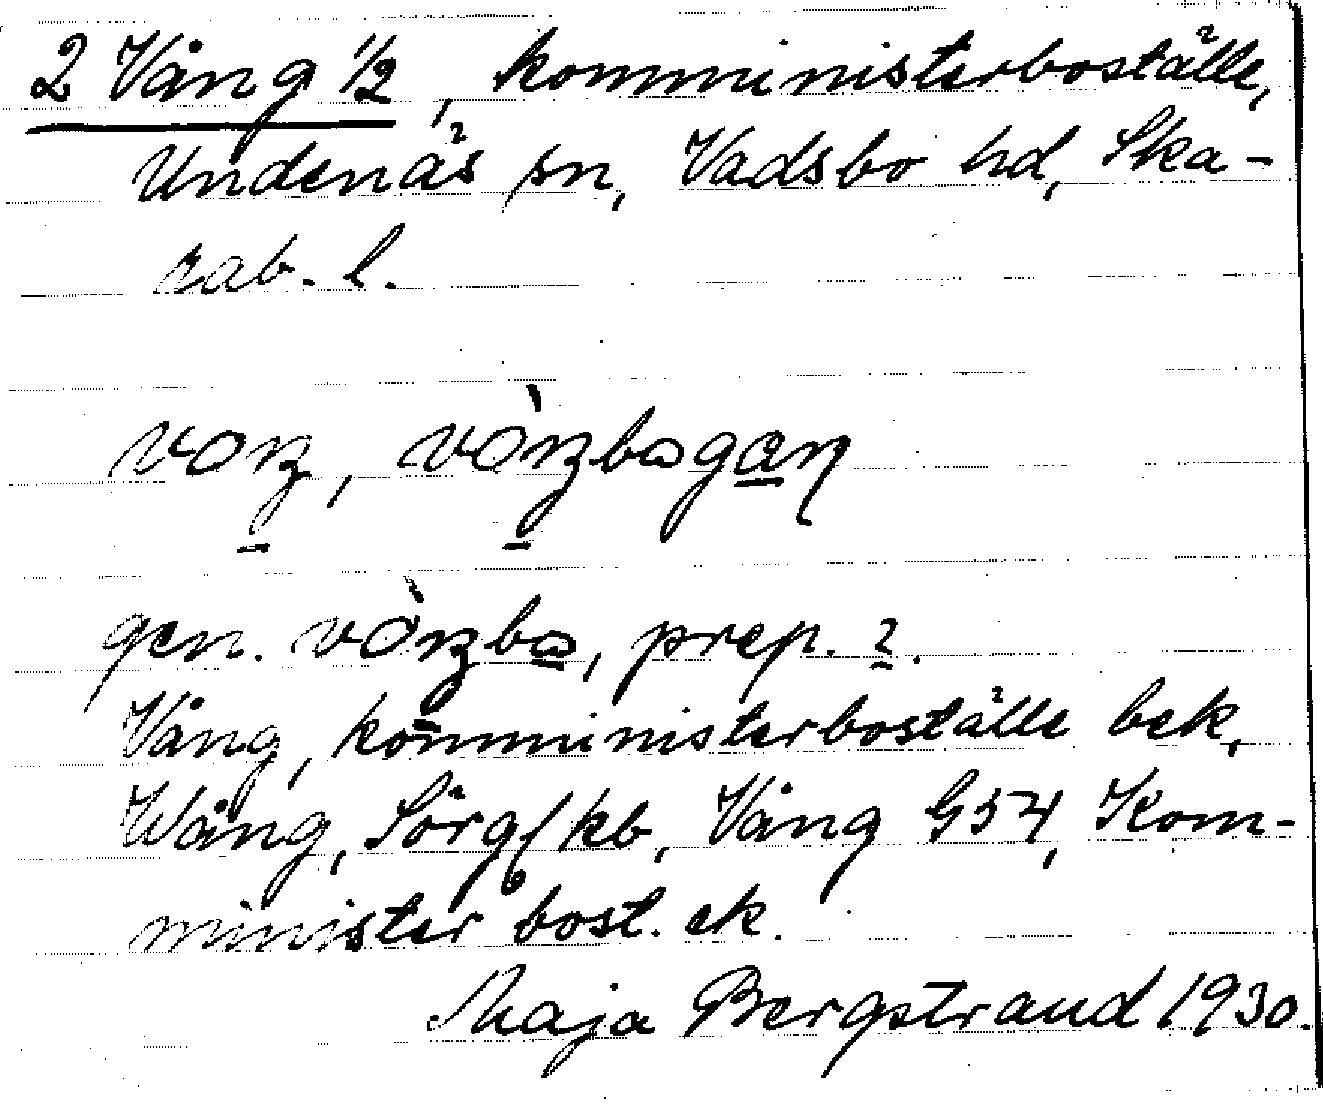 2 Vång 1/2, komministerboställe,
Undenäs sn, Vadsbo hd, Ska-
rab. l.
voŋ, vòŋbogan
gen. vòŋba, prep. 2.
Vång, komministerboställe bek,
Wång, Sörg/kb, Vång G54, Kom-
minister bost. ek.
Maja Bergstrand 1930.